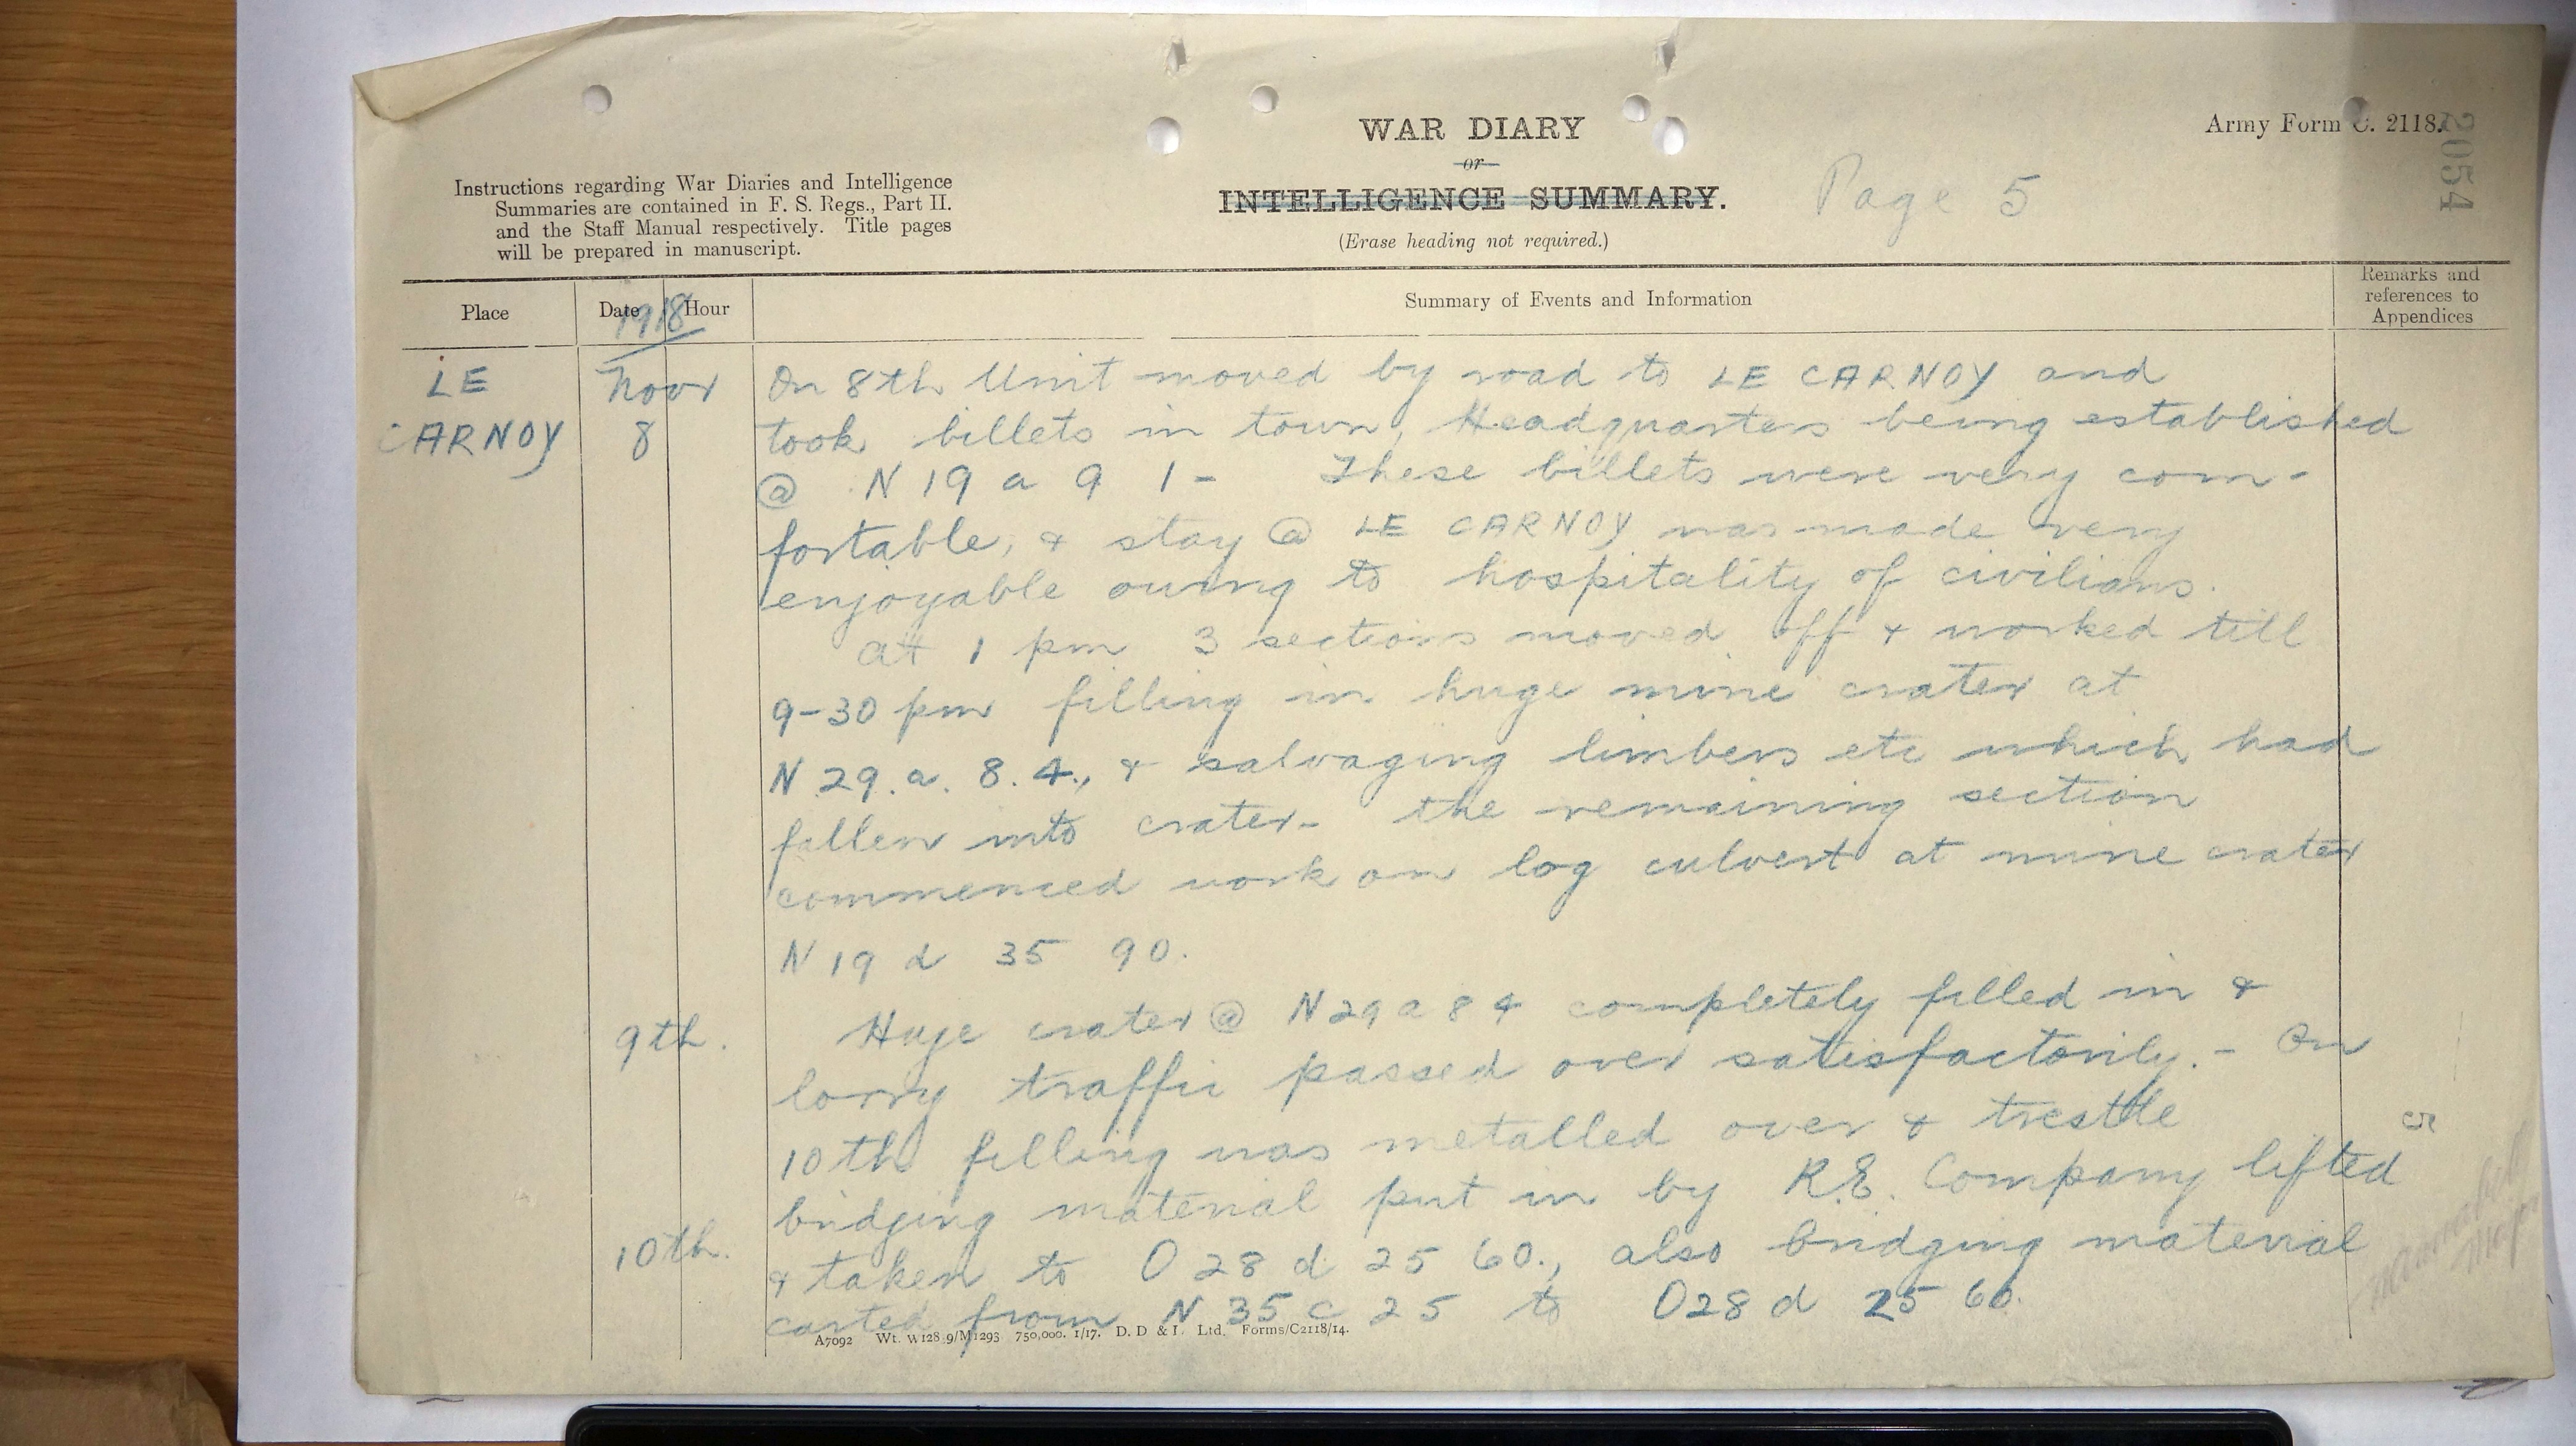 Army Form C. 2118.
2054
WAR DIARY
or
INTELLIGENCE SUMMARY.
(Erase heading not required.)
Page 5
Instructions regarding War Diaries and Intelligence
Summaries are contained in F. S. Regs., Part II.
and the Staff Manual respectively. Title pages
will be prepared in manuscript.
Place
Date
Hour
1918
Summary of Events and Information
Remarks and
references to
Appendices
LE
CARNOY
Novr
8
On 8th Unit moved by road to LE CARNOY and
took billets in town, Headquarters being established
@ N 19 a 9 1 - These billets were very com-
fortable, & stay @ LE CARNOY was made very
enjoyable owing to hospitality of civilians.
at 1 pm 3 sections moved off & worked till
9-30 pm filling in huge mine crater at
N 29. a. 8. 4., & salvaging limbers etc which had
fallen into crater - the remaining section
commenced work on log culvert at mine crater
N 19 d 35 90.
9th.
Huge crater @ N 29 a 8 4 completely filled in &
lorry traffic passed over satisfactorily. - On
10th filling was metalled over & trestle
bridging material put in by R.E. Company lifted
10th.
& taken to O 28 d 25 60., also bridging material
carted from N 35 c 2 5 to O28 d 25 60.
5
Major
A7092 Wt. W128 9/M1293 750,000. 1/17. D. D & L. Ltd. Forms/C2118/14.